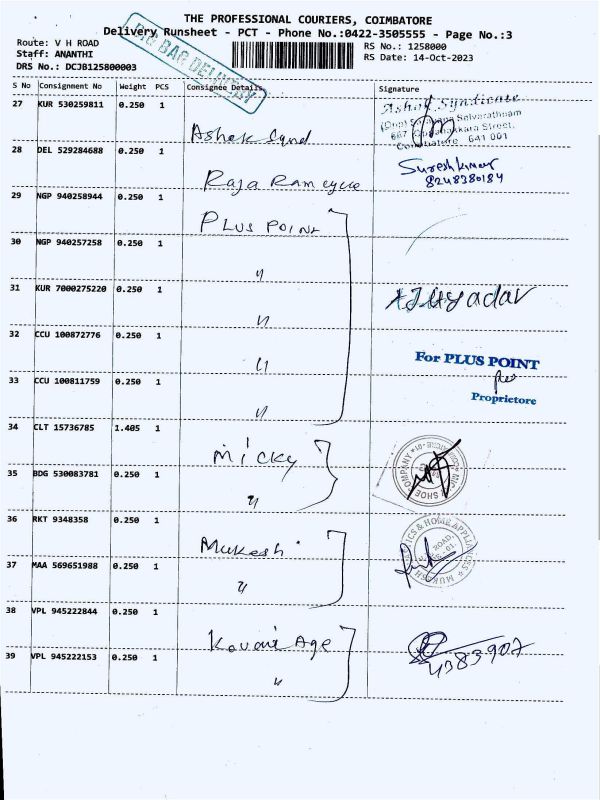 THE PROFESSIONAL COURIERS, COIMBATORE
Delivery Runsheet - PCT - Phone No.:0422-3505555 - Page No.:3
Route: V H ROAD
RS No.: 1258000
Staff: ANANTHI
RS Date: 14-Oct-2023
DRS No.: DCJB125800003
BIG BAG DELIVERY
S No Consignment No Weight PCS Consignee Details Signature
27 KUR 530259811 0.250 1
Ashok Synd
Ashok Syndicate
641 001
28 DEL 529284688 0.250 1
Raja Ram cycle
Sureshkumar
8248380184
29 NGP 940258944 0.250 1
PLUS POINT
30 NGP 940257258 0.250 1
"
31 KUR 7000275220 0.250 1
"
32 CCU 100872776 0.250 1
"
For PLUS POINT
Proprietore
33 CCU 100811759 0.250 1
"
34 CLT 15736785 1.405 1
Micky
SHOE COMPANY
35 BDG 530083781 0.250 1
"
36 RKT 9348358 0.250 1
Mukesh
37 MAA 569651988 0.250 1
"
38 VPL 945222844 0.250 1
Kovai Age
39 VPL 945222153 0.250 1
"